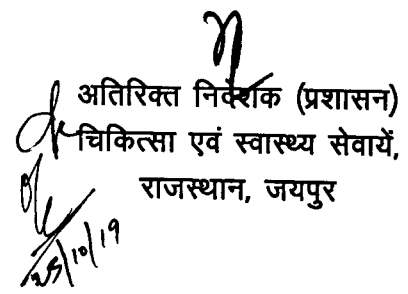 अतिरिक्त निदेशक (प्रशासन)
चिकित्सा एवं स्वास्थ्य सेवायें,
राजस्थान, जयपुर
25/10/19